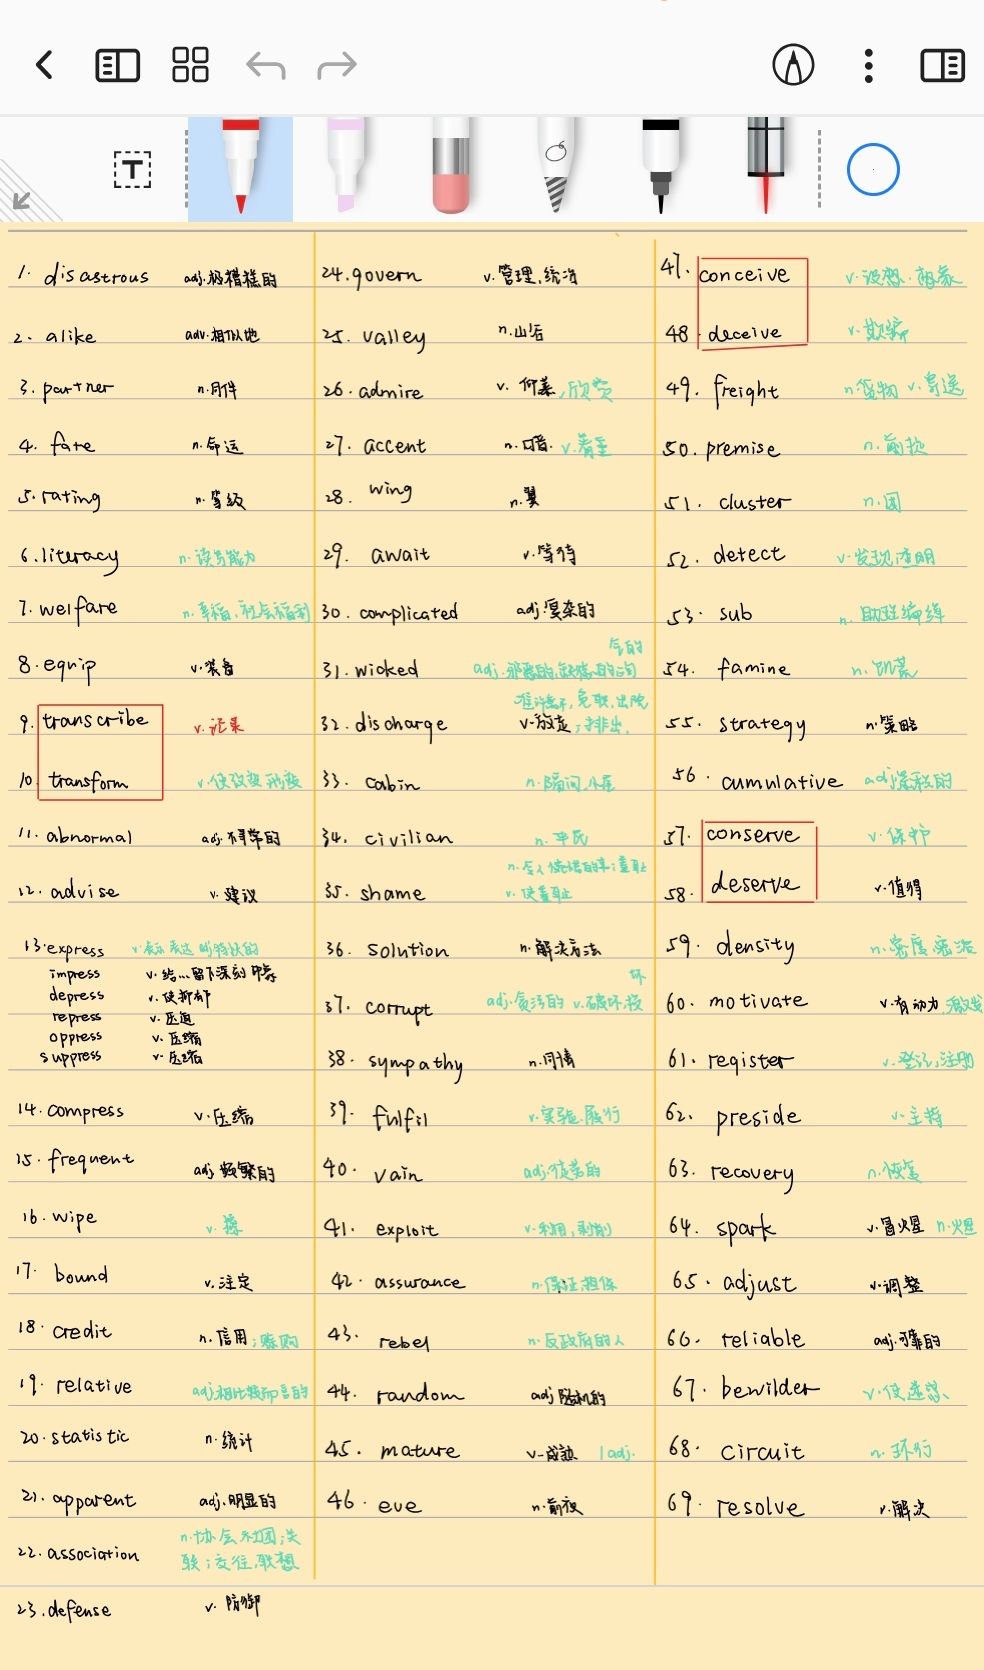 1. disastrous adj.极糟糕的
2. alike adv.相似地
3. partner n.同伴
4. fate n.命运
5. rating n.等级
6. literacy n.读写能力
7. welfare n.幸福,社会福利
8. equip v.装备
9. transcribe v.记录
10. transform v.使改变,形变
11. abnormal adj.不寻常的
12. advise v.建议
13. express v.表示 表达 特快的
impress v.给…留下深刻印象
depress v.使抑郁
repress v.压迫
oppress v.压缩
suppress v.压缩
14. compress v.压缩
15. frequent adj.频繁的
16. wipe v.擦
17. bound v.注定
18. credit n.信用;赊购
19. relative adj.相比较而言的
20. statistic n.统计
21. apparent adj.明显的
22. association n.协会 社团;关
联;交往,联想
23. defense v.防御
24. govern v.管理,统治
25. valley n.山谷
26. admire v.仰慕,欣赏
27. accent n.口音 v.着重
28. wing n.翼
29. await v.等待
30. complicated adj.复杂的
31. wicked adj.邪恶的
32. discharge v.放走;排出,
准许离开,免职,出院
33. cabin n.隔间,小屋
34. civilian n.平民
35. shame n.令人惋惜的事;羞耻
v.使羞耻
36. solution n.解决方法
37. corrupt adj.贪污的 v.破坏
38. sympathy n.同情
39. fulfil v.实现,履行
40. vain adj.徒劳的
41. exploit v.利用,剥削
42. assurance n.保证 担保
43. rebel n.反政府的人
44. random adj随机的
45. mature v.成熟 |adj.
46. eve n.前夜
47. conceive v.设想.想象
48. deceive v.欺骗
49. freight n.货物 v.寄送
50. premise n.前提
51. cluster n.团
52. detect v.发现,查明
53. sub n.助理编辑
54. famine n.饥荒
55. strategy n.策略
56. cumulative adj累积的
57. conserve v.保护
58. deserve v.值得
59. density n.密度 密浓
60. motivate v.有动力,激发
61. register v.登记,注册
62. preside v.主持
63. recovery n.恢复
64. spark v.冒火星 n.火星
65. adjust v.调整
66. reliable adj.可靠的
67. bewilder v.使迷惑
68. circuit n.环行
69. resolve v.解决